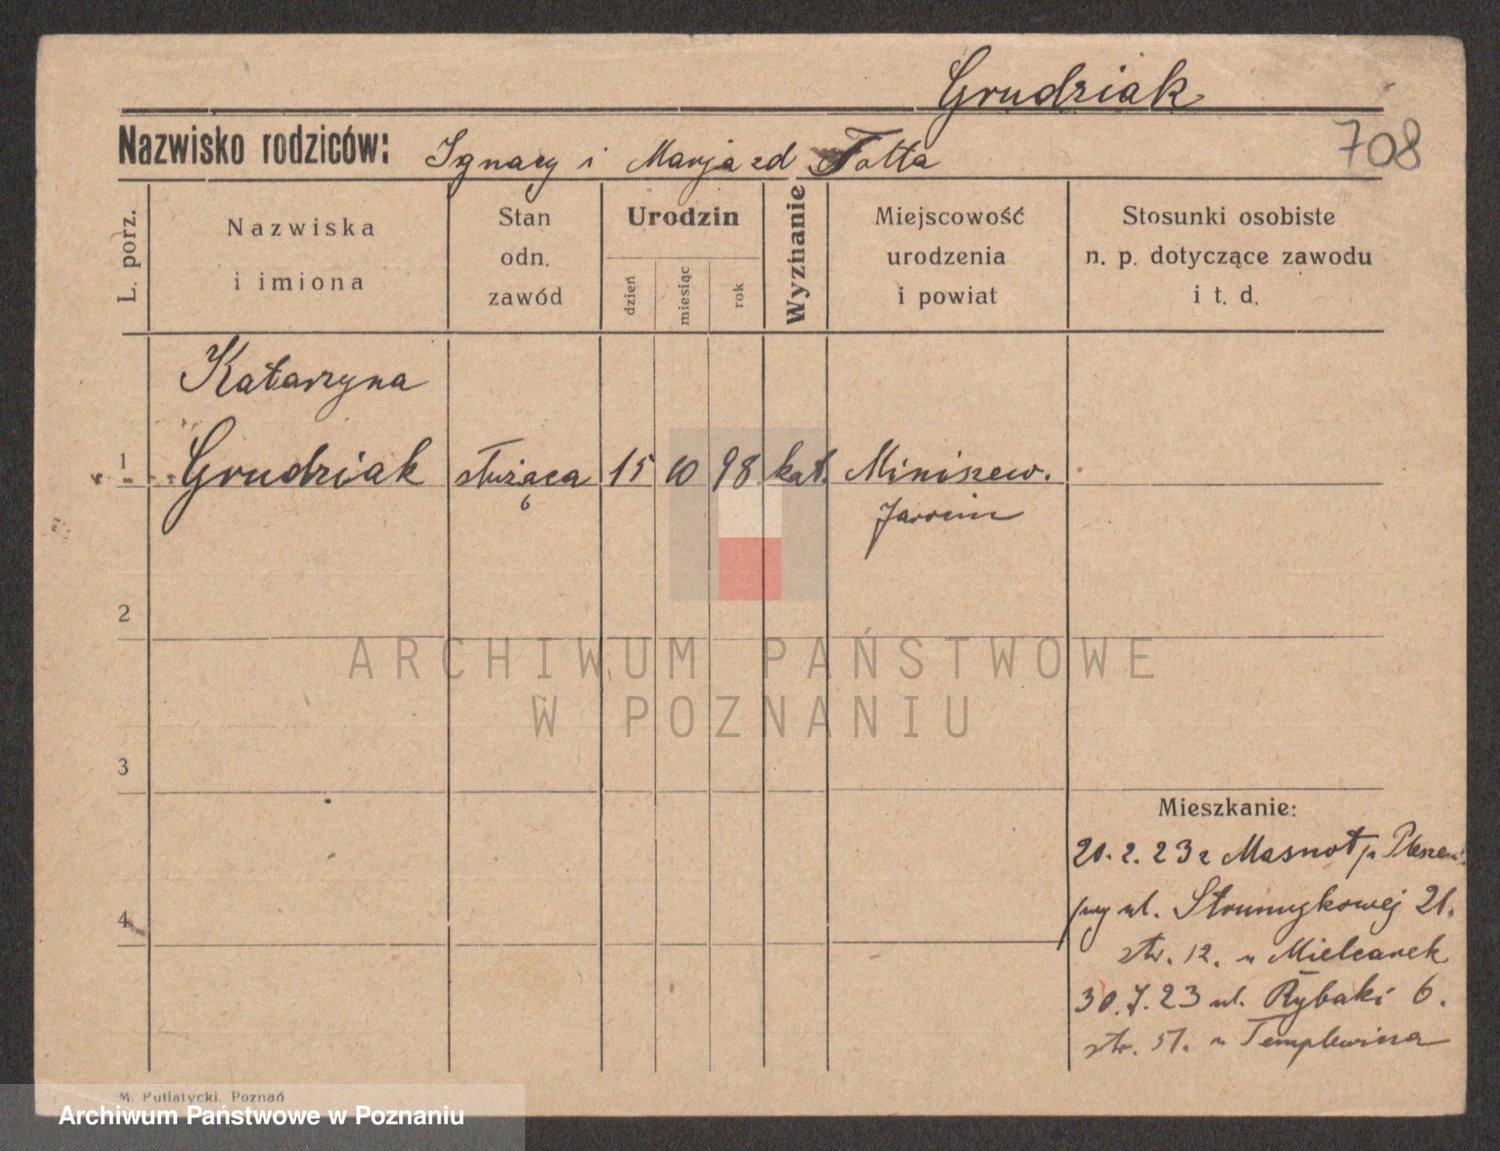 Grudziak
708
Nazwisko rodziców: Ignacy i Marja zd Totta
L. porz.
Nazwiska
i imiona
Stan
odn.
zawód
Urodzin
dzień
miesiąc
rok
Wyznanie
Miejscowość
urodzenia
i powiat
Stosunki osobiste
n. p. dotyczące zawodu
i t. d.
Katarzyna
1 Grudziak służąca 15 10 98 kat. Miniszew.
Jarocin
2
ARCHIWUM PAŃSTWOWE
W POZNANIU
3
Mieszkanie:
20. 2. 23 z
ul. Strumykowej 21.
str. 12. u Mielcarek
4
30. 7. 23 ul. Rybaki 6.
str. 51. u
M. Putiatycki, Poznań
Archiwum Państwowe w Poznaniu